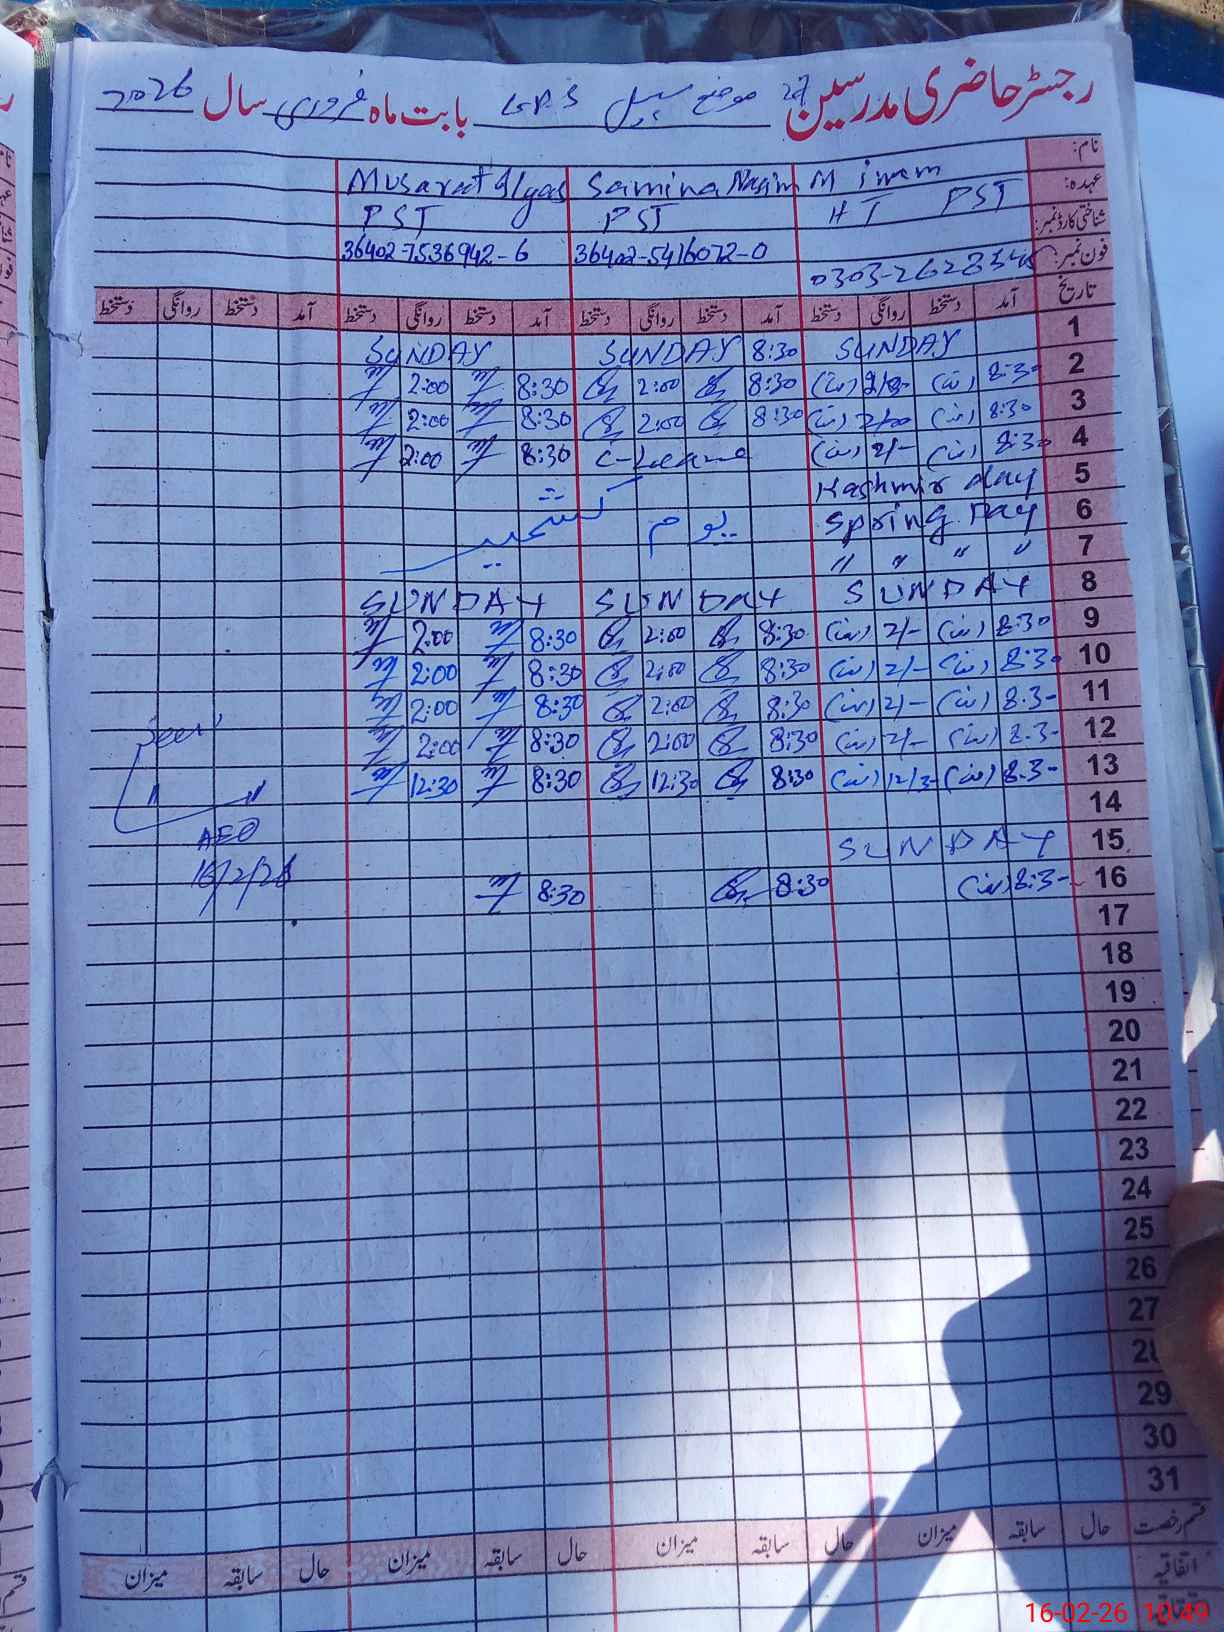 رجسٹر حاضری مدرسین موضع سہیل G.P.S بابت ماہ فروری سال 2026
نام: M imam Samina Nasim Musarat Ilyas
عہدہ: HT PST PST PST
شناختی کارڈ نمبر: 36402-5416072-0 36402-7536942-6
فون نمبر: 0303-2628345
تاریخ آمد دستخط روانگی دستخط آمد دستخط روانگی دستخط آمد دستخط روانگی دستخط آمد دستخط روانگی دستخط
1 SUNDAY 8:30 SUNDAY SUNDAY
2 8:30 2/00 8:30 2:00 8:30 2:00
3 8:30 2/00 8:30 2:00 8:30 2:00
4 8:30 2/- C-Leave 8:30 2:00
5 Kashmir day
6 Spring Day یوم کشمیر
7 " " " "
8 SUNDAY SUNDAY SUNDAY
9 8:30 2/- 8:30 2:00 8:30 2:00
10 8:30 2/- 8:30 2:00 8:30 2:00
11 8.3- 2/- 8:30 2:00 8:30 2:00
12 8.3- 2/- 8:30 2:00 8:30 2:00 Seen
13 8.3- 12/3- 8:30 12:30 8:30 12:30 " "
14 AEO
15 SUNDAY 16/2/26
16 8:3- 8:30 8:30
17
18
19
20
21
22
23
24
25
26
27
28
29
30
31
قسم رخصت حال سابقہ میزان حال سابقہ میزان حال سابقہ میزان حال سابقہ میزان
اتفاقیہ
16-02-26 10:49